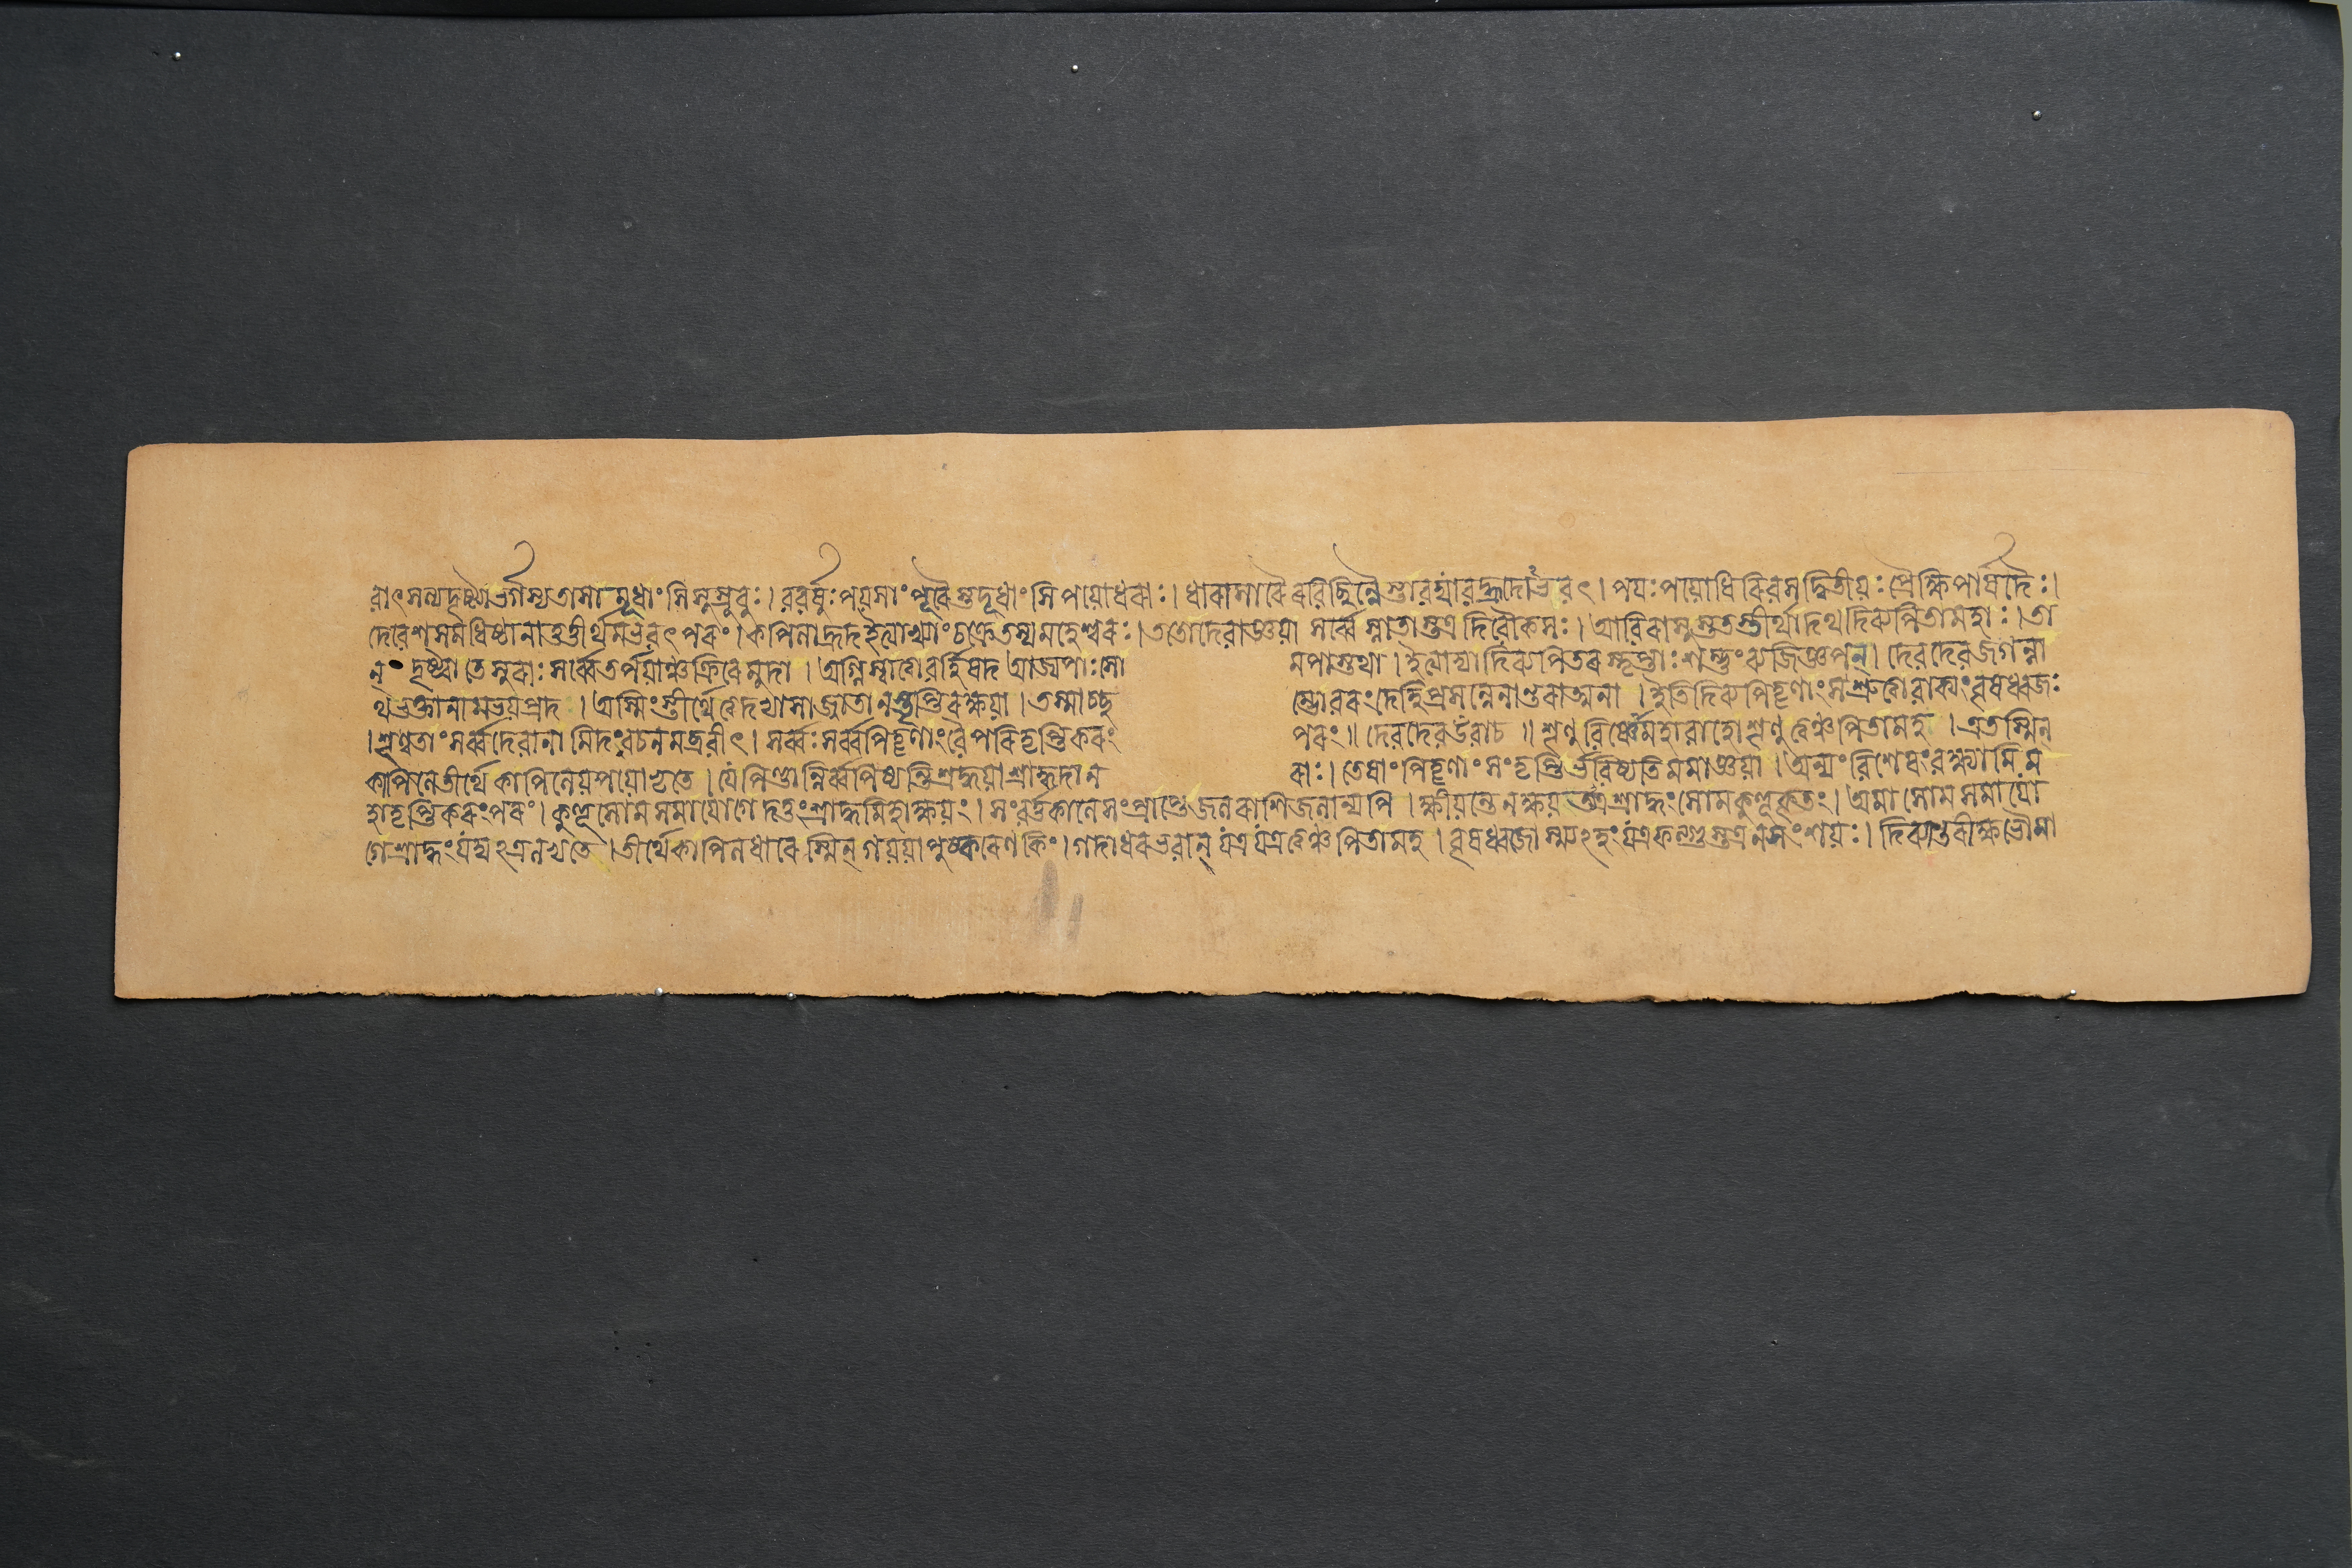 রাৎসন্যদৃষ্ট্যৈর্ভগৈস্যতাসামূধাংসিসুস্রুবুঃ।ববর্ষুঃপয়সাংপূরৈস্তদূধাংসিপয়োধরাঃ।ধারাসারৈরবিছিন্নৈস্তাবদ্যাবদ্ধ্রদোঽভবৎ।পয়ঃপয়োধিরিবসদ্বিতীয়ঃপ্রৈক্ষিপার্ষদৈঃ।
দেবেশসমধিষ্ঠানাত্তত্তীর্থমভবৎপরং।কপিলাহ্রদইত্যাখ্যাংচক্রেতস্যমহেশ্বরঃ।ততোদেবাজ্ঞয়া সর্ব্বেস্নাতাস্তত্রদিবৌকসঃ।আবিরাসুস্ততস্তীর্থাদথদিব্যপিতামহাঃ।তা
ন্ দৃষ্ট্বাতেসুরাঃসর্ব্বেতর্পয়াঞ্চক্রিরেমুদা।অগ্নিষ্বাত্তাবর্হিষদআজ্যপাঃসো মপাস্তথা।ইত্যাদ্যাদিব্যপিতরস্তৃপ্তাঃশম্ভুংব্যজিজ্ঞপন্।দেবদেবজগন্না
থভক্তানামভয়প্রদ।অস্মিংস্তীর্থেত্বদভ্যাসাজ্জাতানস্তৃপ্তিরক্ষয়া।তস্মাচ্ছ ম্ভোবরংদেহিপ্রসন্নেনান্তরাত্মনা।ইতিদিব্যপিতৃণাংসশ্রুত্বাবাক্যংবৃষধ্বজঃ
।শৃণ্বতাংসর্ব্বদেবানামিদংবচনমব্রবীৎ।সর্ব্বঃসর্ব্বপিতৃণাংবৈপরিতৃপ্তিকরং পরং॥দেবদেবউবাচ॥শৃণুবিষ্ণোমহাবাহোশৃণুত্বঞ্চপিতামহ।এতস্মিন্
কাপিলেতীর্থেকাপিলেয়পয়োভৃতে।যেপিণ্ডান্নির্ব্বপিষ্যন্তিশ্রদ্ধয়াশ্রাদ্ধদান রাঃ।তেষাংপিতৃণাংসংতৃপ্তির্ভবিষ্যতিমমাজ্ঞয়া।অন্যংবিশেষংবক্ষ্যামিম
হাতৃপ্তিকরংপরং।কুহূসোমসমাযোগেদত্তংশ্রাদ্ধমিহাক্ষয়ং।সংবর্ত্তকালেসংপ্রাপ্তেজলরাশিজলান্যপি।ক্ষীয়ন্তেনক্ষয়ত্যত্রশ্রাদ্ধংসোমকুহূকৃতং।অমাসোমসমাযো
গেশ্রাদ্ধংযদ্যত্রলভ্যতে।তীর্থেকাপিলধারেস্মিন্গয়য়াপুষ্করেণকিং।গদাধরভবান্যত্রযত্রত্বঞ্চপিতামহ।বৃষধ্বজোস্ম্যহংযত্রফল্গুস্তত্রনসংশয়ঃ।দিব্যান্তরীক্ষভৌমা